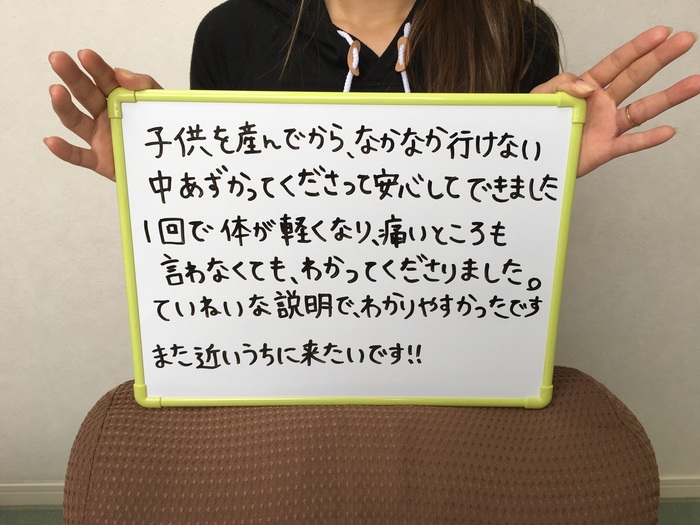 子供を産んでから、なかなか行けない
中あずかってくださって安心してできました
1回で体が軽くなり、痛いところも
言わなくても、わかってくださりました。
ていねいな説明で、わかりやすかったです
また近いうちに来たいです!!